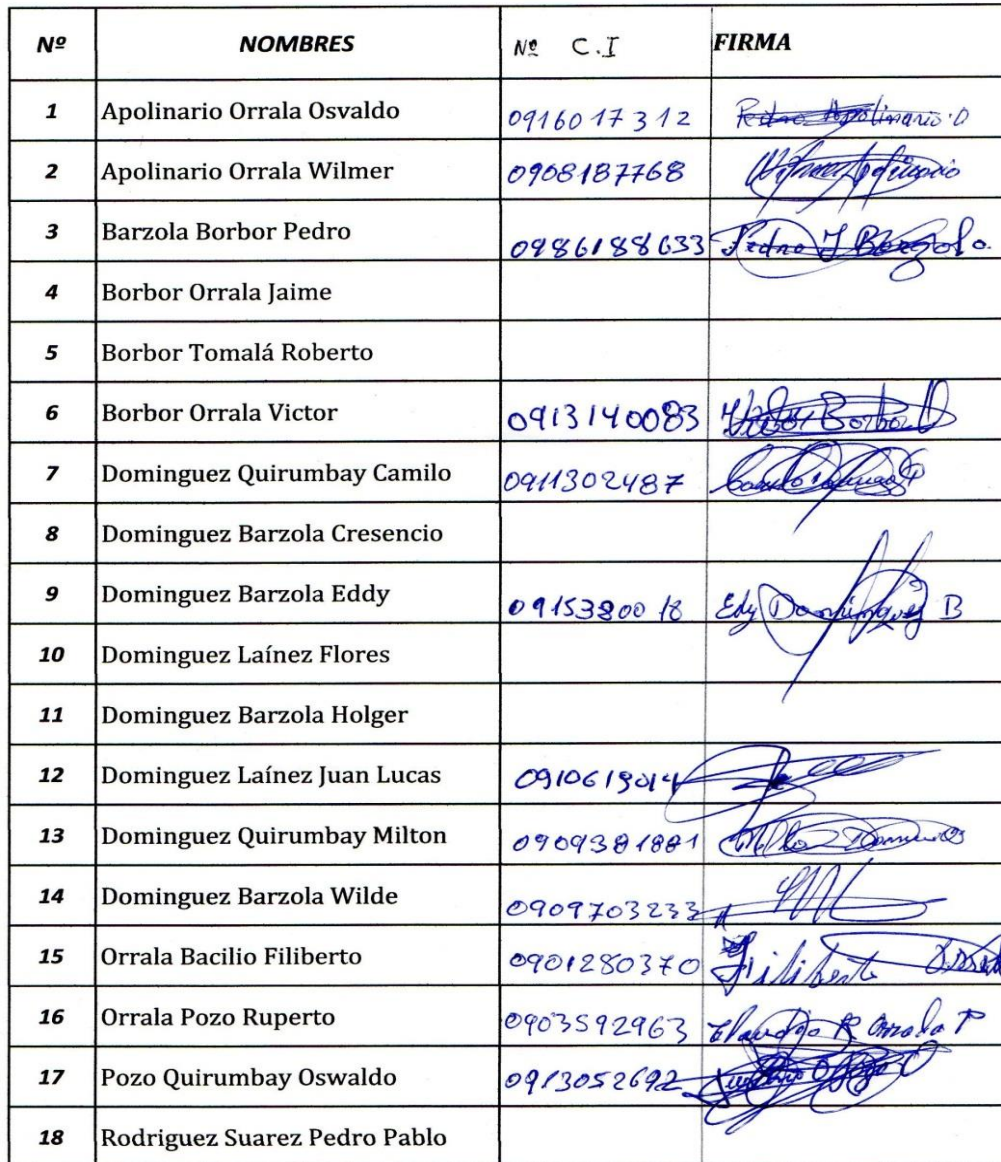 Nº NOMBRES Nº C.I FIRMA
1 Apolinario Orrala Osvaldo 0916017312 Pedro Apolinario O
2 Apolinario Orrala Wilmer 0908187768 Wilmer Apolinario
3 Barzola Borbor Pedro 0986188633 Pedro J Barzola.
4 Borbor Orrala Jaime
5 Borbor Tomalá Roberto
6 Borbor Orrala Victor 0913140083 Victor Borbor O
7 Dominguez Quirumbay Camilo 0911302487
8 Dominguez Barzola Cresencio
9 Dominguez Barzola Eddy 0915380018 Edy Dominguez B
10 Dominguez Laínez Flores
11 Dominguez Barzola Holger
12 Dominguez Laínez Juan Lucas 0910619014
13 Dominguez Quirumbay Milton 0909381881
14 Dominguez Barzola Wilde 0909703233
15 Orrala Bacilio Filiberto 0901280370 Filiberto
16 Orrala Pozo Ruperto 0903592963 R Orrala P
17 Pozo Quirumbay Oswaldo 0913052692
18 Rodriguez Suarez Pedro Pablo